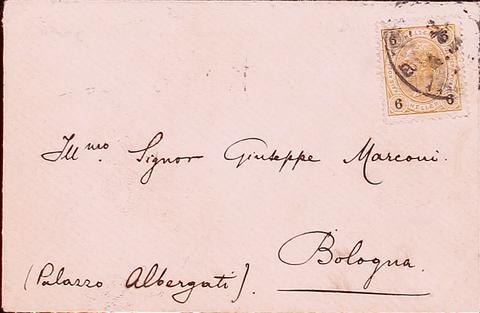 6 6
6 HELLER 6
Ill.mo Signor Giuseppe Marconi.
Bologna.
(Palazzo Albergati).